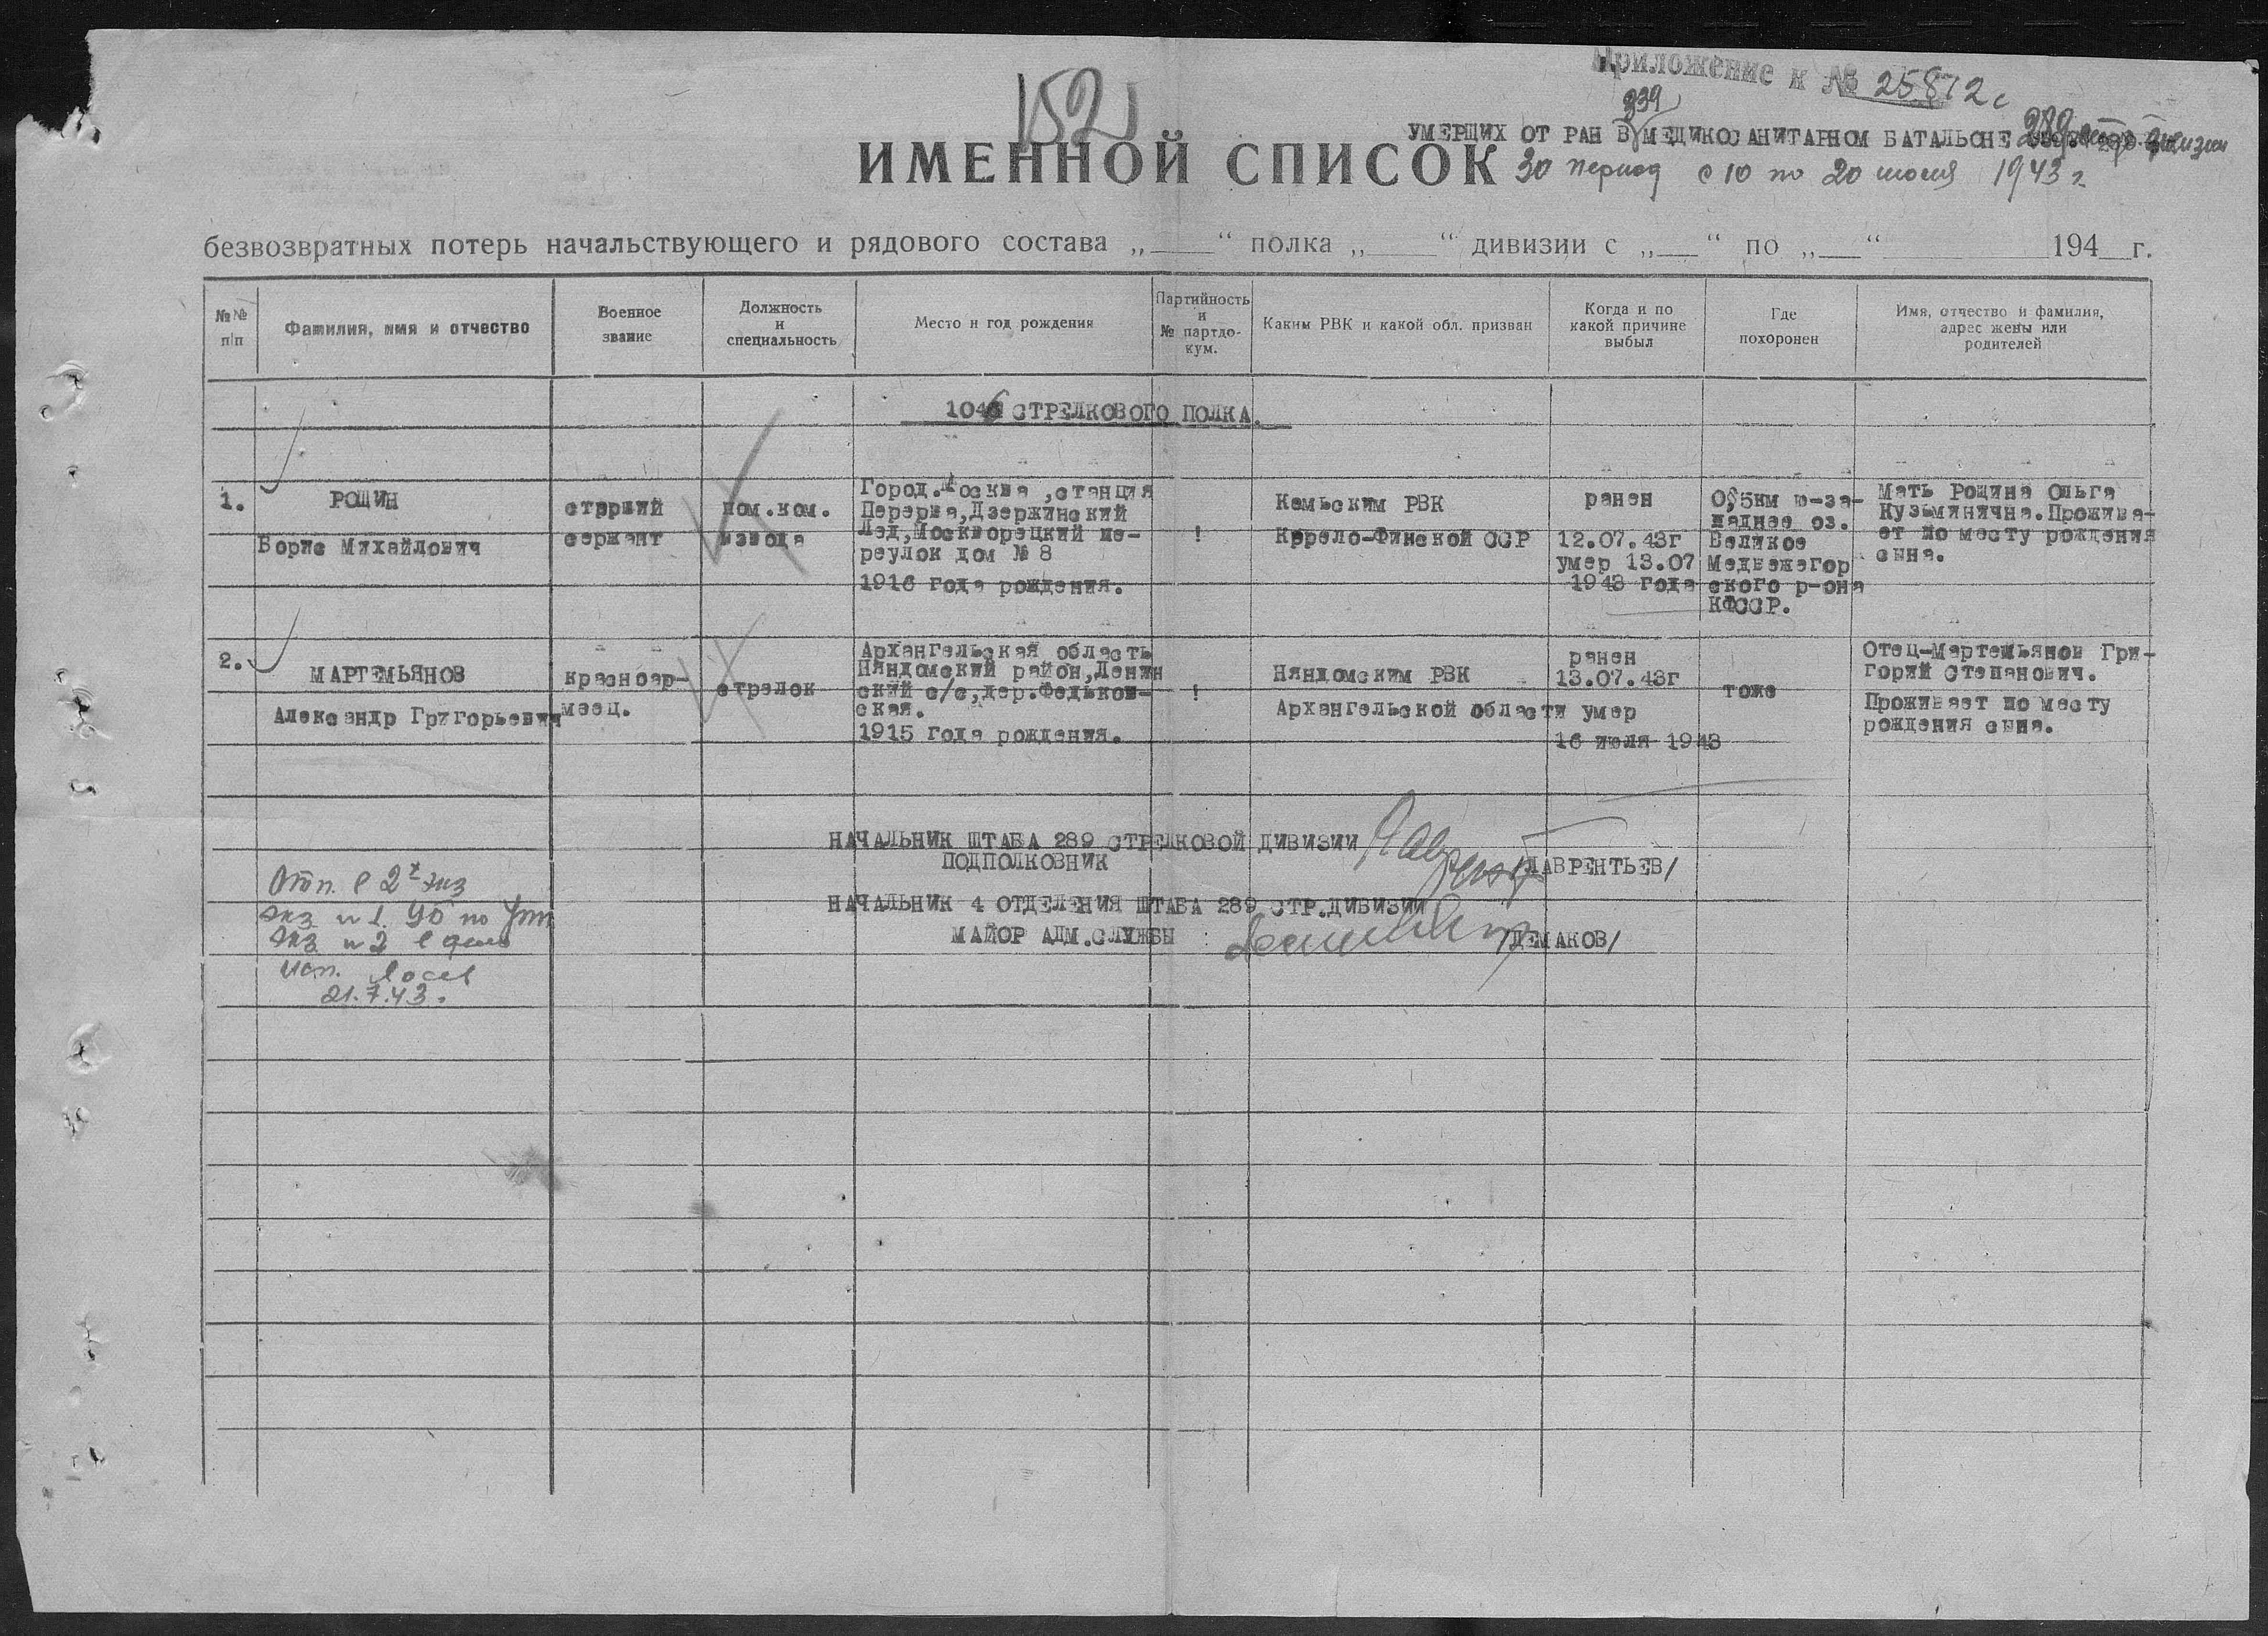 Приложение к № 25872с
152
339
УМЕРШИХ ОТ РАН В МЕДИКОСАНИТАРНОМ БАТАЛЬОНЕ 289 стр. дивизии
ИМЕННОЙ СПИСОК за период с 10 по 20 июля 1943 г.
безвозвратных потерь начальствующего и рядового состава „____“ полка „____“ дивизии с „___“ по „___“ ________ 194__г.
№№ п/п
Фамилия, имя и отчество
Военное звание
Должность и специальность
Место и год рождения
Партийность и № партдо-кум.
Каким РВК и какой обл. призван
Когда и по какой причине выбыл
Где похоронен
Имя, отчество и фамилия, адрес жены или родителей
1046 СТРЕЛКОВОГО ПОЛКА.
1.
РОЩИН
Борис Михайлович
старший
сержант
пом.ком.
взвода
Город.Москва ,станция
Перерва,Дзержинский
Москворецкий пе-
реулок дом № 8
1916 года рождения.
!
Кемьским РВК
Карело-Финской ССР
ранен
12.07.43г
умер 13.07
1943 года
0,5км ю-за-
паднее оз.
Великое
Медвежегор
ского р-она
КФССР.
Мать Рощина Ольга
Кузьминична.Прожива-
ет по месту рождения
сына.
2.
МАРТЕМЬЯНОВ
Александр Григорьевич
красноар-
меец.
стрелок
Архангельская область
Няндомский район,Ленин
ский с/с,дер.Федьков-
ская.
1915 года рождения.
!
Няндомским РВК
Архангельской области
ранен
13.07.43г
умер
16 июля 1943
тоже
Отец-Мартемьянов Гри-
горий Степанович.
Проживает по месту
рождения сына.
НАЧАЛЬНИК ШТАБА 289 СТРЕЛКОВОЙ ДИВИЗИИ
ПОДПОЛКОВНИК
/ЛАВРЕНТЬЕВ/
НАЧАЛЬНИК 4 ОТДЕЛЕНИЯ ШТАБА 289 СТР.ДИВИЗИИ
МАЙОР АДМ.СЛУЖБЫ : /ДЕМАКОВ/
Отп. в 2х экз
экз n 1
экз n 2 в дело
исп.
21.7.43.